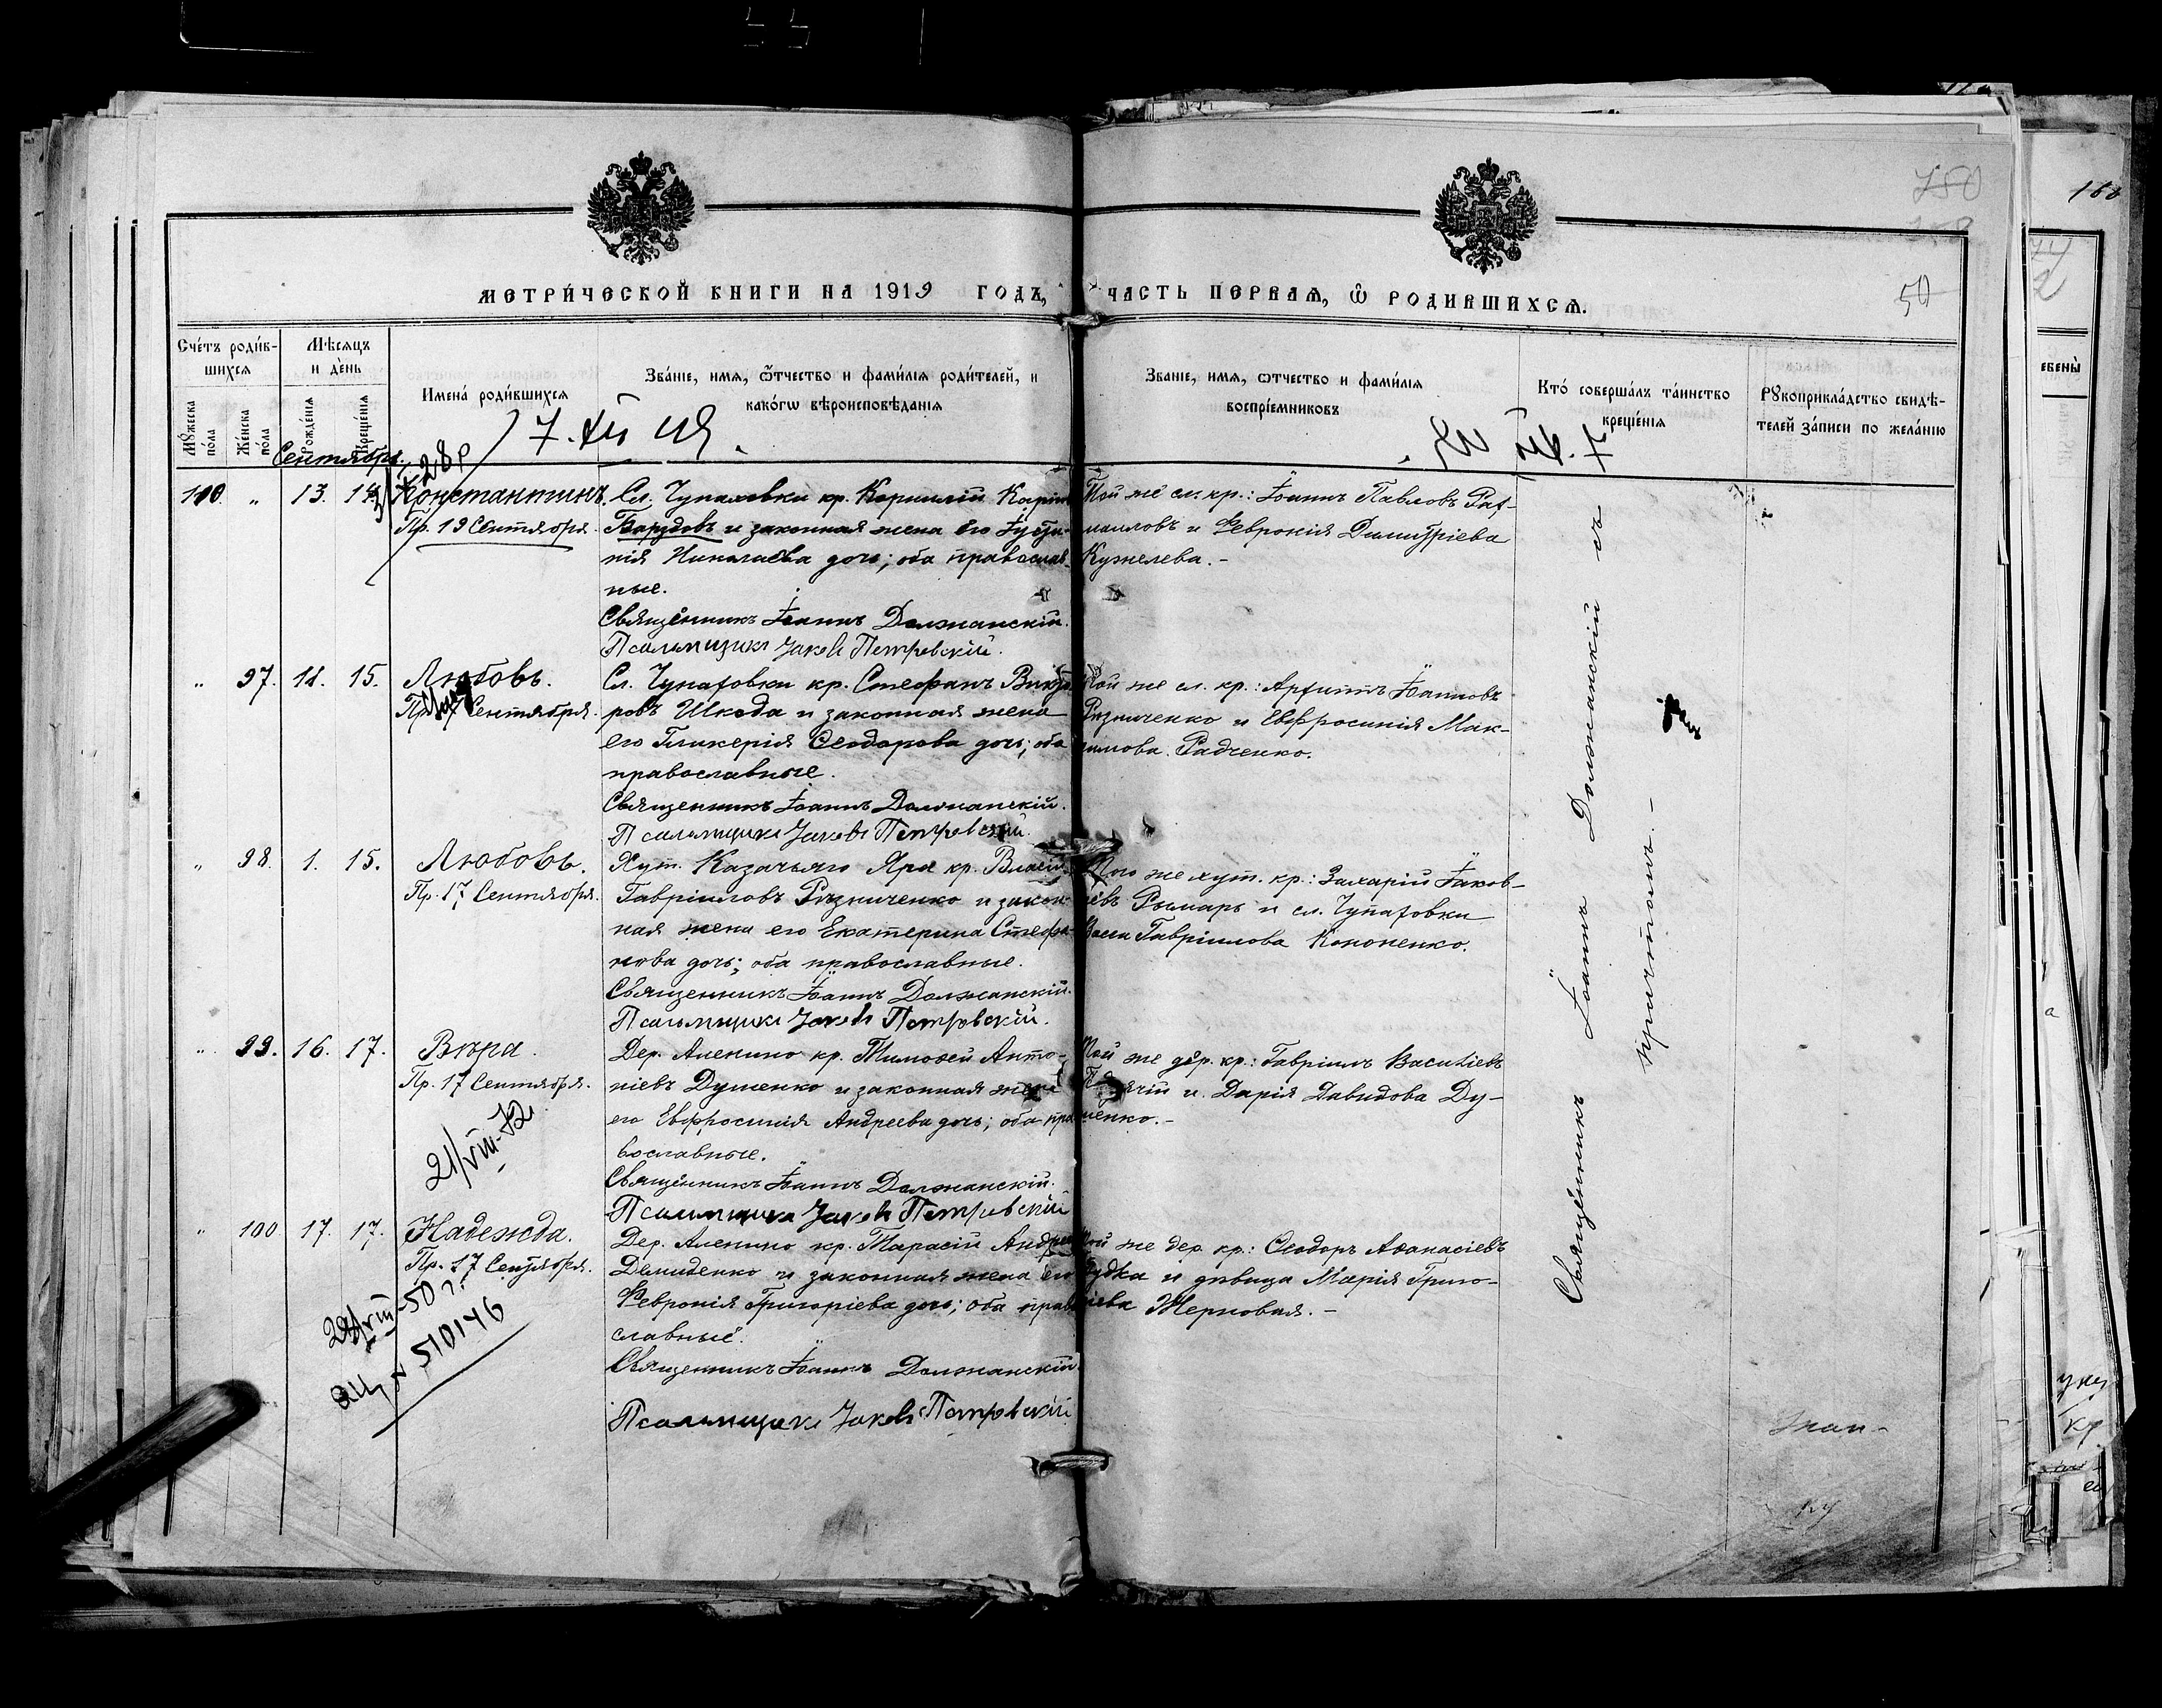 МЕТРИ́ЧЕСКОЙ КНИГИ НА 1919 ГОДЪ,
ЧАСТЬ ПЕРВАѦ, Ѽ РОДИВШИХСѦ.
50
Сче́тъ роди́в-
шихсѧ
Мꙋ́жеска по́ла
Же́нска по́ла
Мѣ́сѧцъ
и де́нь
Рожде́нїѧ
Креще́нїѧ
Имена̀ роди́вшихсѧ
Зва́нїе, имѧ, ѻ҆́тчество и фами́лїѧ роди́телей, и
како́гѡ вѣроисповѣ́данїѧ
Званїе, имѧ, ѡтчество и фами́лїѧ
воспрїемниковъ
Кто́ соверша́лъ та́инство
креще́нїѧ
Рꙋкоприкла́дство свидѣ́-
телей за́писи по жела́нїю
Сентябрь.
100 „ 13. 14. Константинъ.
Пр. 19 Сентября.
Сл. Чупаховки кр. Корнилій
и законная жена его
нія Николаева дочь; оба православ-
ные.
Священникъ Іоаннъ Должанскій.
Псаломщикъ Іаковъ Петровскій.
Той же сл. кр.: Іоаннъ Павловъ
и Февронія Димитріева
Кужелева. –
„ 97. 11. 15. Любовь.
Сентября.
Сл. Чупаховки кр. Стефанъ
ровъ Шкода и законная жена
его Гликерія Ѳеодорова дочь; оба
православные.
Священникъ Іоаннъ Должанскій.
Псаломщикъ Іаковъ Петровскій.
Той же сл. кр.: Архиппъ Іоанновъ
Рѣзниченко и Евфросинія Мак-
симова Радченко.
„ 98. 1. 15. Любовь.
Пр. 17 Сентября.
Хут. Казачьяго Яра кр. Власій
Гавріиловъ Рѣзниченко и закон-
ная жена его Екатерина Стефа-
нова дочь; оба православные.
Священникъ Іоаннъ Должанскій.
Псаломщикъ Іаковъ Петровскій.
Того же хут. кр.: Захарій Іаков-
левъ Рымарь и сл. Чупаховки
Гавріилова Кононенко.
„ 99. 16. 17. Вѣра.
Пр. 17 Сентября.
21/VIII-72
Дер. Аленино кр. Тимоѳей Анто-
ніевъ Душенко и законная жена
его Евфросинія Андреева дочь; оба пра-
вославные.
Священникъ Іоаннъ Должанскій.
Псаломщикъ Іаковъ Петровскій
Той же дер. кр.: Гавріилъ Василіевъ
и Дарія Давидова Ду-
шенко. –
„ 100 17. 17. Надежда.
Пр. 17 Сентября.
510146
Дер. Аленино кр. Тарасій
Демиденко и законная жена его
Февронія Григоріева дочь; оба право-
славные.
Священникъ Іоаннъ Должанскій.
Псаломщикъ Іаковъ Петровскій
Той же дер. кр.: Ѳеодоръ Аѳанасіевъ
Дудка и дѣвица Марія Григо-
ріева Жерновая. –
Священникъ Іоаннъ Должанскій съ
причтомъ. –